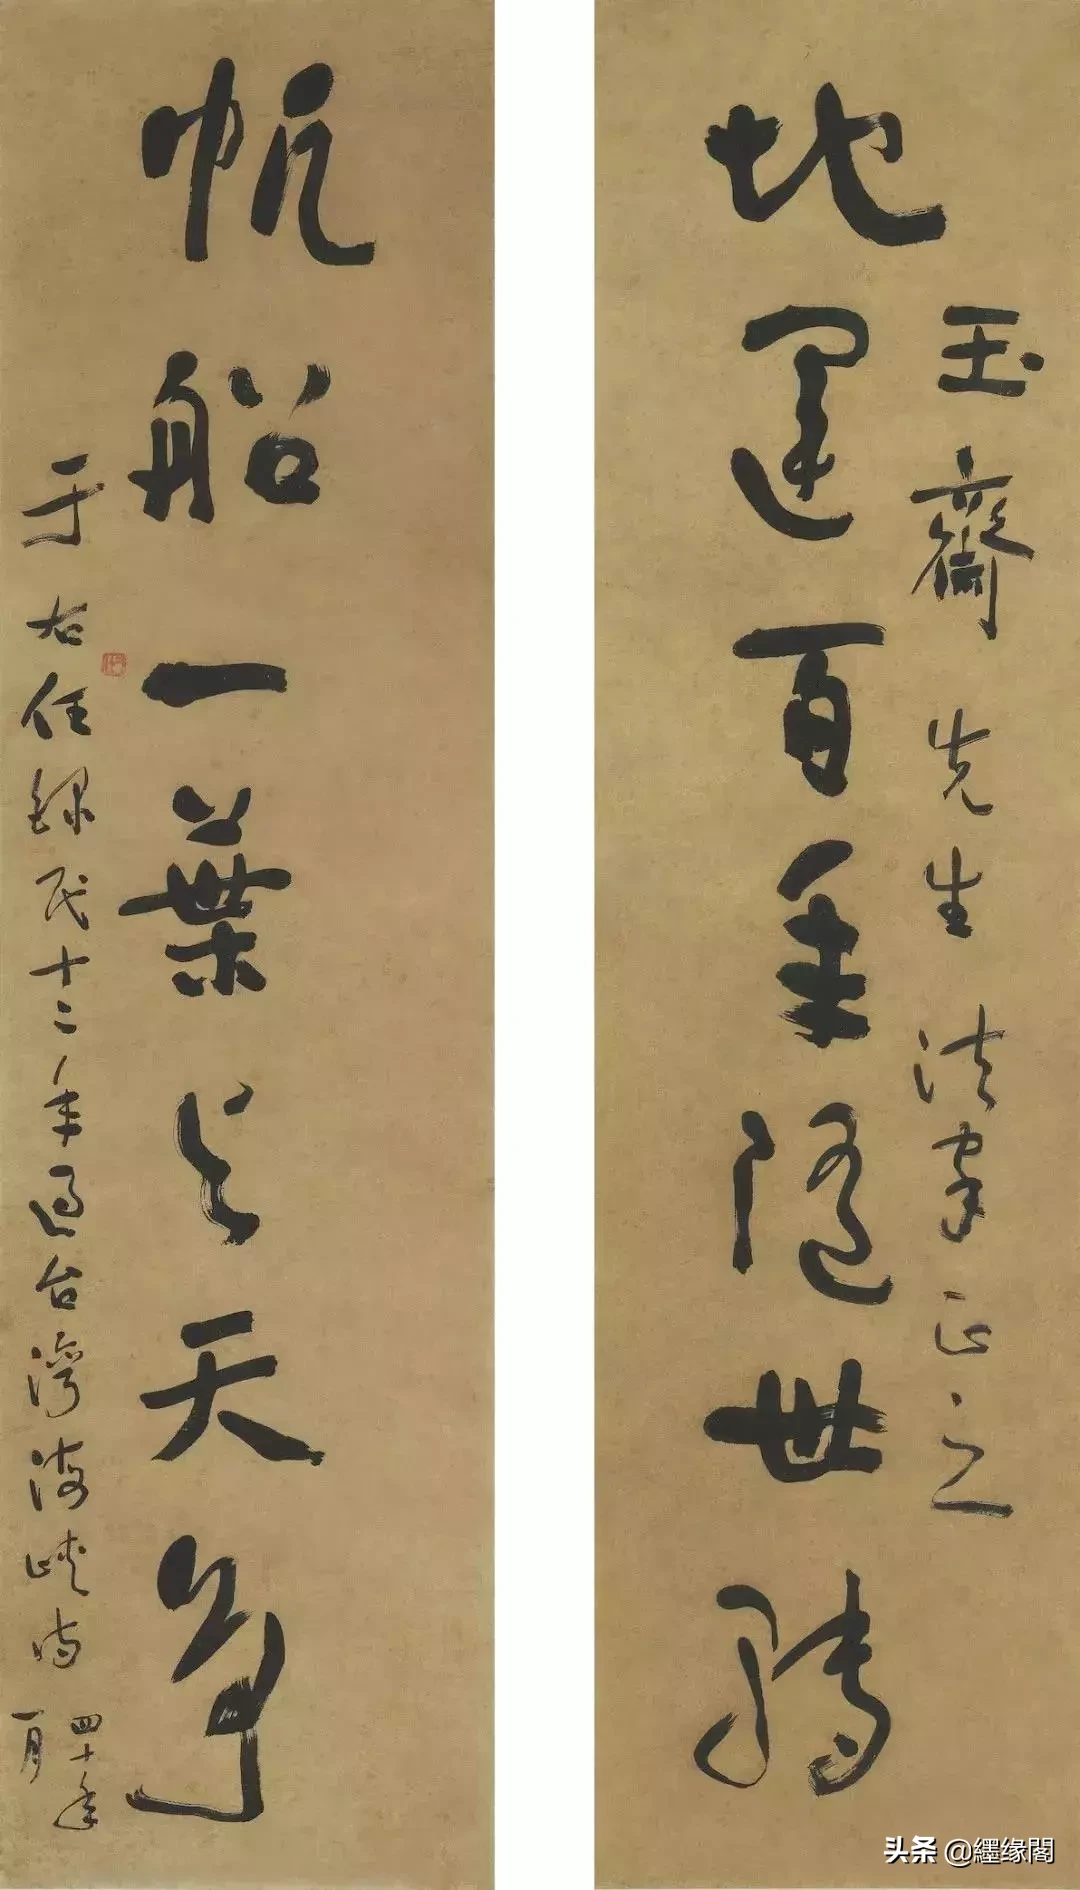 玉齋先生法家正之
地運百年隨世轉
帆船一葉与天爭
于右任錄民十二年過台灣海峽時
四十年
一月
头条 @纆缘閣